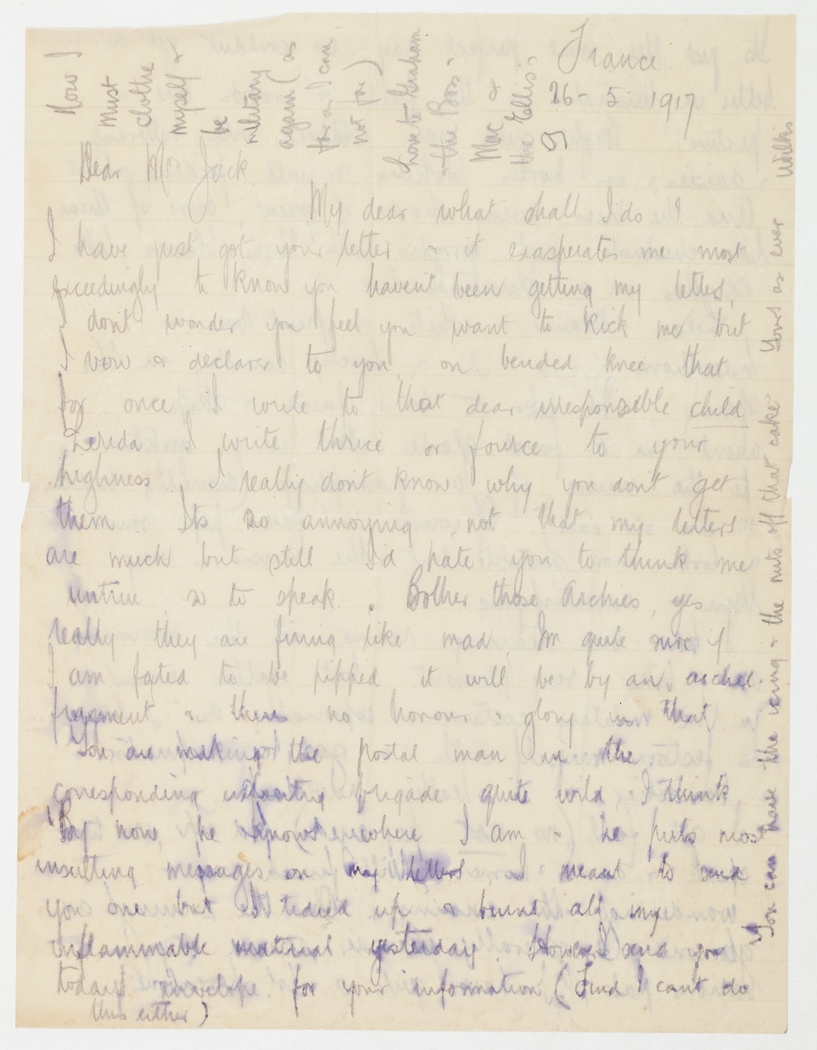 France
26 - 5 - 1917
Dear Mr Jack
My dear what shall I do!
I have just got your letter & it exasperates me most
exceedingly to know you haven't been getting my letters,
dont wonder you feel you want to kick me but
I vow & declare to you on bended knee that
for once I write to that dear irresponsible child
I write thrice or fource to your
highness I really dont know why you dont get
them. Its so annoying, not that my letters
are much but still I'd hate you to think me
untrue so to speak. Bother those Archies, yes
really they are firing like mad, Im quite sure if
I am fated to be pipped it will be by an archie
fragment & theres no honour & glory in that,
You are making the postal man in the
corresponding infantry brigade quite wild I think
By now he knows where I am & he puts most
insulting messages on my letters I meant to send
you one but I tidied up & burnt all my
inflammable material yesterday. However I send you
todays envelope for your information (Find I cant do
this either)
Now I
must
clothe
myself &
be
military
again (as
far as I can
not far)
Love to Graham
the Boss
Mac &
the Ellis's
You can have the icing & the nuts off that cake Yours as ever Wilks